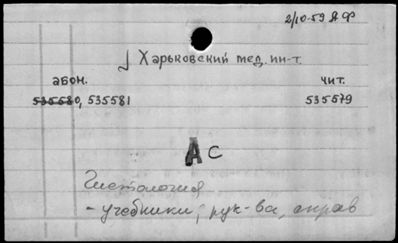 2/10-59 АФ
√ Харьковский мед. ин-т.
абон. чит.
535580, 535581 535579
АС
Гистология
- учебники, рук-ва, справ